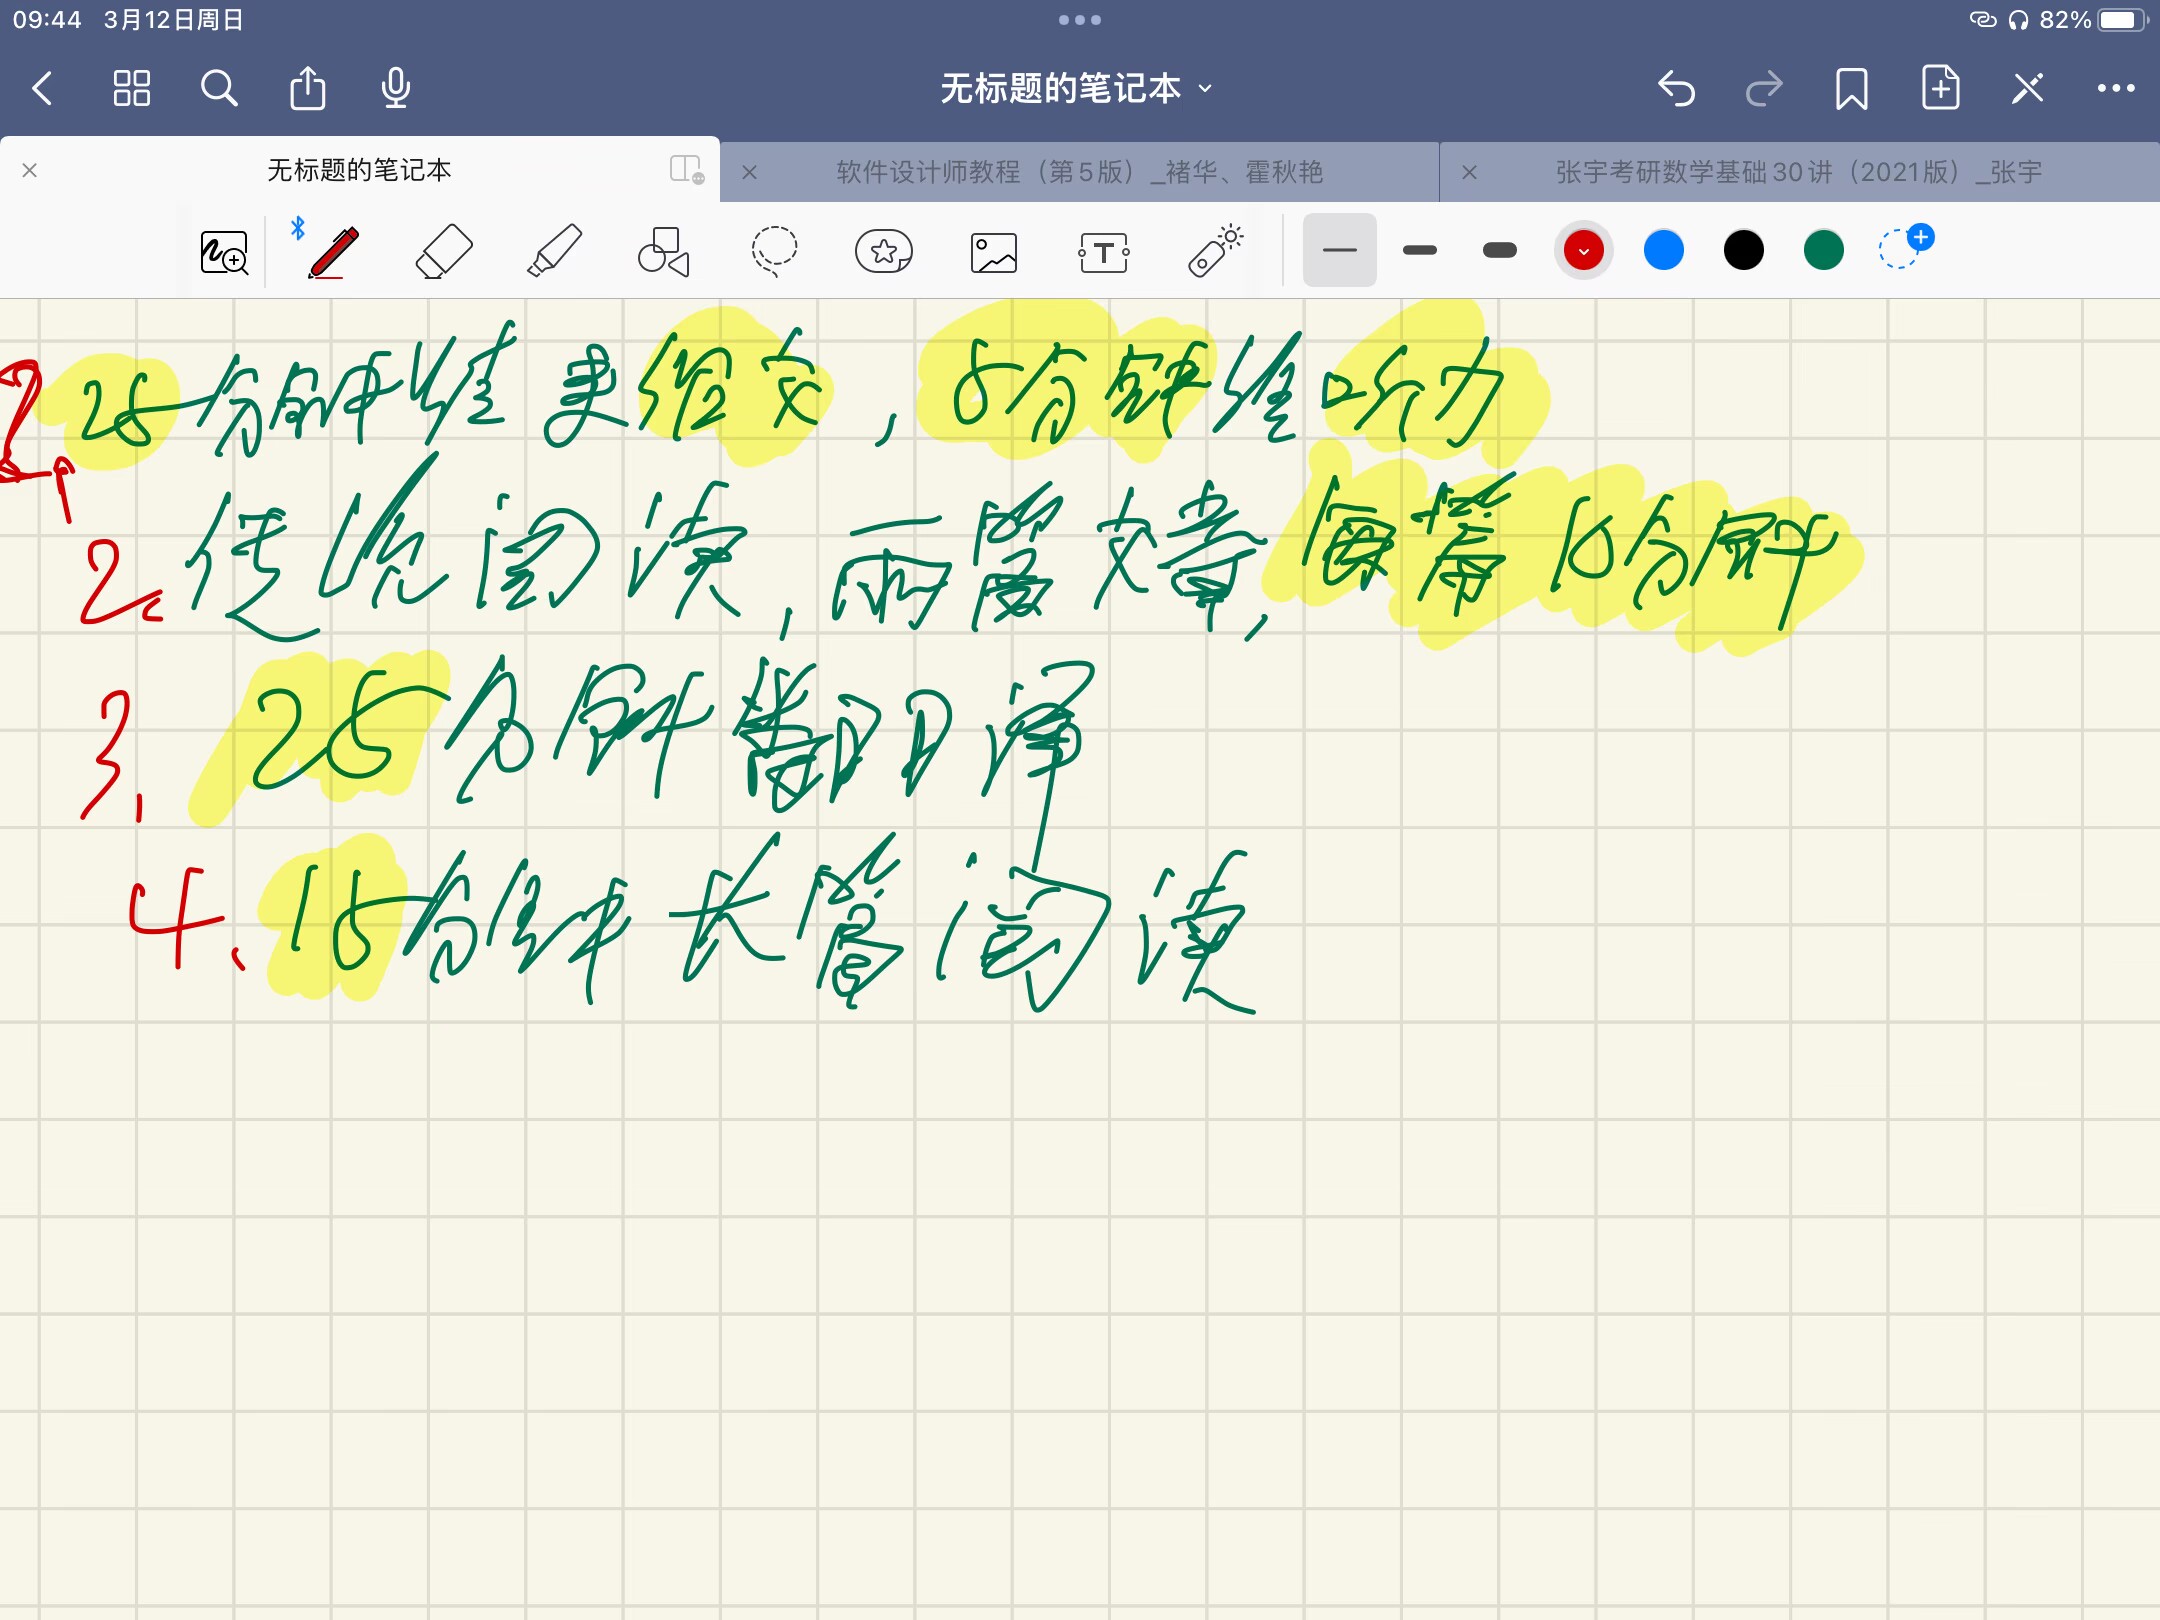 09:44 3月12日周日
82%
无标题的笔记本
无标题的笔记本
软件设计师教程（第5版）_褚华、霍秋艳
张宇考研数学基础30讲（2021版）_张宇
T
25分钟 作文，5分钟 听力
2. 传统阅读，两篇文章，每篇10分钟
3、25分钟翻译
4、15分钟长篇阅读